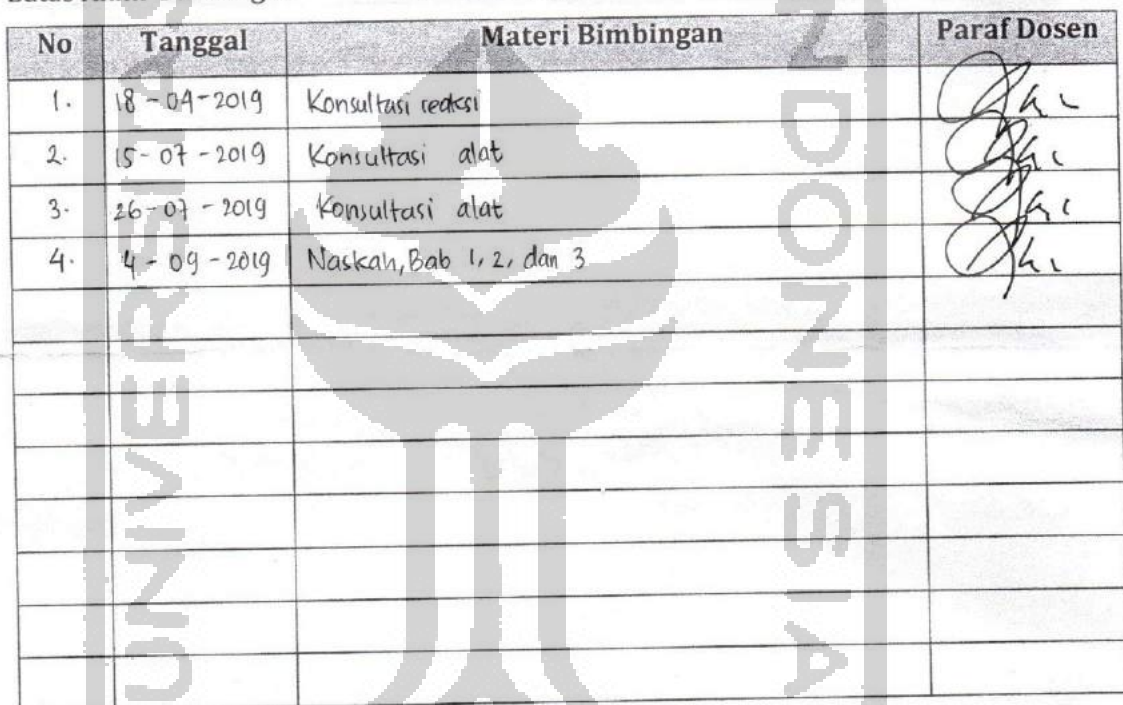 No Tanggal Materi Bimbingan Paraf Dosen
1. 18-04-2019 Konsultasi reaksi
2. 15-07-2019 Konsultasi alat
3. 26-07-2019 Konsultasi alat
4. 4-09-2019 Naskah, Bab 1, 2, dan 3
UNIVERSITAS
INDONESIA